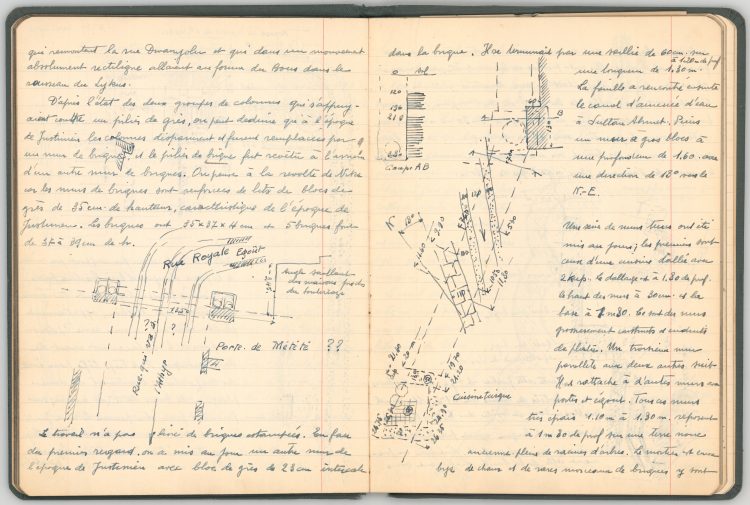 qui remontant la rue Divanyolu et qui dans un mouvement
absolument rectiligne allaient au forum du Bous dans le
ruisseau du Lykus.
D'après l'état des deux groupes de colonnes qui s'appuy-
aient contre un piliés de grès, on peut déduire qu'à l'époque
de Justinien les colonnes disparurent et furent remplacées par
un mur de briques et le piliés de brique fut revêtu à l'arrière
d'un autre mur de briques. On pense à la revolte de Nika
car les murs de briques sont renforcés de lits de blocs de
grès de 35 cm de hauteur, caractéristique de l'époque de
Justinien. Les briques ont 35 x 37 x 4 cm et 5 briques font
de 37 à 39 cm de h.
Rue Royale Egoût
Angle saillant
des maisons près
Porte de Mélété ??
Rue qui va à
?
Le travail n'a pas livré de briques estampées. En face
du premier regard, on a mis au jour un autre mur de
l'époque de Justinien avec bloc de grès de 23 cm intercalé
dans la brique. Il se terminait par une saillie de 60 cm sur
à 1.20 m de prof
une longueur de 1.30 m.
La fouille a rencontré ensuite
le canal d'amenée d'eau
à Sultan Ahmet. Puis
un mur à gros blocs à
une profondeur de 1.60 avec
une direction de 18° vers le
N.-E.
0 sol
120
Coupe AB
A
B
N
Une série de murs turcs ont été
mis au jour; les premiers sont
ceux d'une cuisine dallée avec
le dallage est à 1.30 de prof.
le haut des murs à 30 cm et la
base à 1 m 30. Ce sont des murs
grossièrement construits et enduits
de plâtre. Un troisième mur
parallèle aux deux autres
Il se rattache à d'autres murs avec
portes et égout. Tous ces murs
très épais 1.10 m à 1.30 m. reposent
à 1 m 30 de prof sur une terre noire
Cuisine turque
ancienne pleine de racines d'arbres. Le mortier est encore
de chaux et de rares morceaux de briques y sont